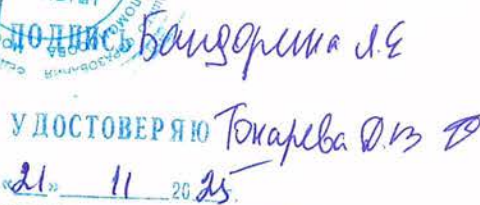 ПОДПИСЬ Бандорина Л.Е
УДОСТОВЕРЯЮ Токарева О.В
«21» 11 2025